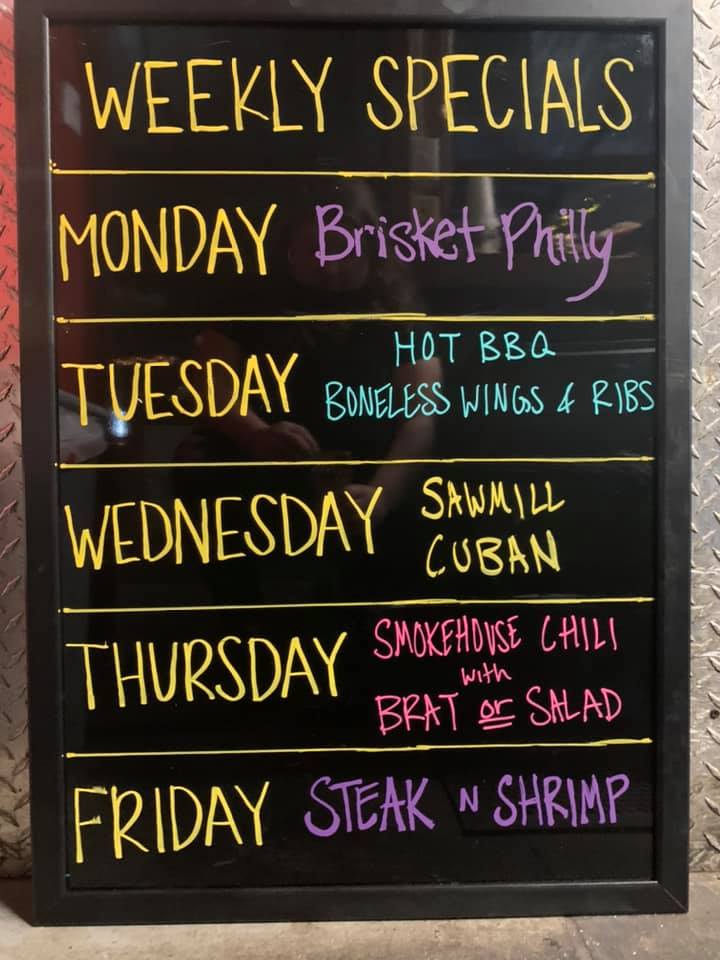 WEEKLY SPECIALS
MONDAY Brisket Philly
TUESDAY HOT BBQ
BONELESS WINGS & RIBS
WEDNESDAY SAWMILL
CUBAN
THURSDAY SMOKEHOUSE CHILI
with
BRAT or SALAD
FRIDAY STEAK N SHRIMP